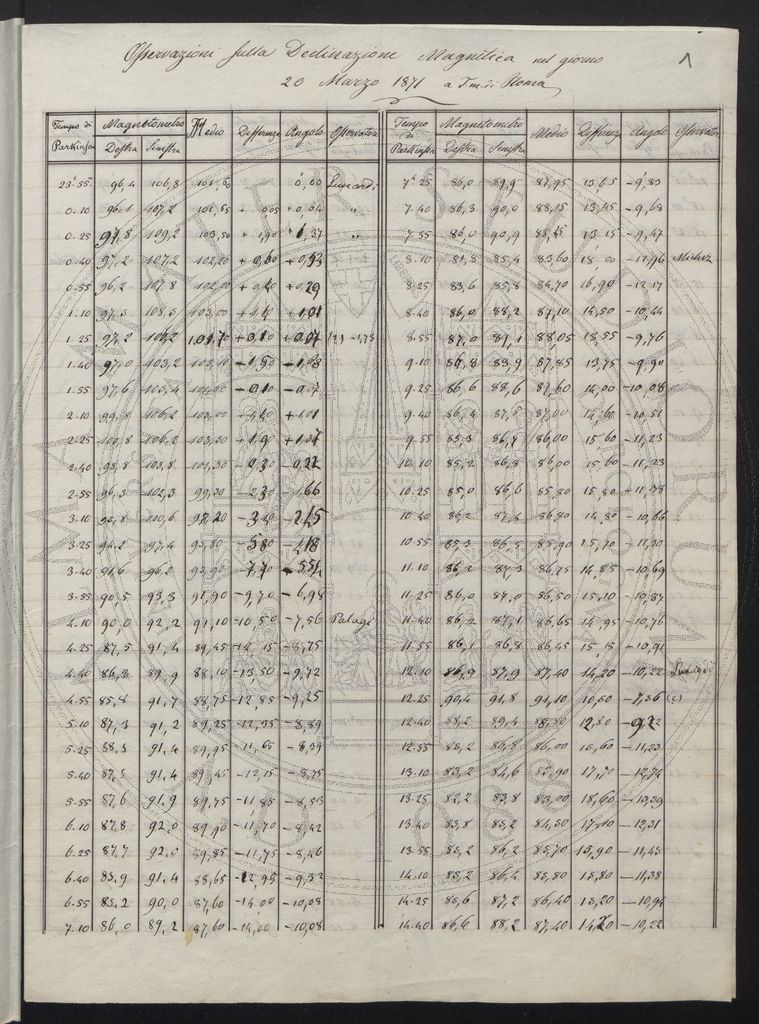 Osservazioni sulla Declinazione Magnetica nel giorno
20 Marzo 1871 a T.m. di Roma
1
Tempo di Magnetometro Medio Differenze Angolo Osservatore
Parkinson Destra Sinistra
23.55 96,4 106,8 101,60 0,00
0.10 107,2 101,65 + 0,05 + 0,04 "
0.25 97,8 109,2 103,50 + 1,90 + 1,37 "
0.40 97,2 107,2 102,20 + 0,60
0.55 96,2 107,8 102,00 + 0,40 + 0,29
1.10 97,5 108,5 103,00 + 1,40 + 1,01
1.25 97,2 106,2 101,70 + 0,10 + 0,07
1.40 97,0 103,2
1.55 97,6
2.10 99,8 106,2 103,00 + 1,01
2.25 100,8 106,2 103,50 + 1,90 + 1,37
2.40 98,8 103,8 101,30 - 0,30 - 0,22
2.55 96,3 102,3 99,30 - 2,30 - 1,66
3.10 95,8 100,6 98,20 - 3,40 - 2,45
3.25 94,2 97,4 95,80 - 5,80 - 4,18
3.40 91,6 96,2 93,90 - 7,70 - 5,54
3.55 90,5 93,3 91,90 - 9,70 - 6,98
4.10 90,0 92,2 91,10 - 10,50 - 7,56 Palagi
4.25 87,5 91,4 89,45 - 12,15 - 8,75
4.40 86,3 89,9 88,10 - 13,50 - 9,72
4.55 85,8 91,7 88,75 - 12,85 - 9,25
5.10 87,3 91,2 89,25 - 12,35 - 8,89
5.25 88,5 91,4 89,95 - 11,65 - 8,39
5.40 87,5 91,4 89,45 - 12,15 - 8,75
5.55 87,6 91,9 89,75 - 11,85 - 8,53
6.10 87,8 92,0 89,90 - 11,70 - 8,42
6.25 87,7 92,0 89,85 - 11,75 - 8,46
6.40 85,9 91,4 88,65 - 12,95 - 9,32
6.55 85,2 90,0 87,60 - 14,00 - 10,08
7.10 86,0 89,2 87,60 - 14,00 - 10,08
Tempo di Magnetometro Medio Differenze Angolo Osservatore
Parkinson Destra Sinistra
7.25 86,0 89,9 87,95 13,65 - 9,83
7.40 86,3 90,0 88,15 13,45 - 9,68
7.55 86,0 90,9 88,45 13,15 - 9,47
8.10 81,8 85,4 83,60 18,00 - 12,96
8.25 83,6 85,8 84,70 16,90 - 12,17
8.40 86,0 88,2 87,10 14,50 - 10,44
8.55 87,0 89,1 88,05 13,55 - 9,76
9.10 86,8 88,9 87,85 13,75 - 9,90
9.25 86,6 88,6 87,60 14,00 - 10,08
9.40 86,4 87,6 87,00 14,60 - 10,51
9.55 85,3 86,7 86,00 15,60 - 11,23
10.10 85,2 86,8 86,00 15,60 - 11,23
10.25 85,0 86,6 85,80 15,80
10.40 86,2 87,4 86,80 14,80 - 10,66
10.55 85,3 86,5 85,90 15,70 - 11,30
11.10 86,2 87,3 86,75 14,85 - 10,69
11.25 86,0 87,0 86,50 15,10 - 10,87
11.40 86,2 87,1 86,65 14,95 - 10,76
11.55 86,1 86,8 86,45 15,15 - 10,91
12.10 86,9 87,9 87,40 14,20 - 10,22
12.25 90,4 91,8 91,10 10,50 - 7,56
12.40 88,2 89,4 88,80 12,80 - 9,22
12.55 85,2 86,8 86,00 15,60 - 11,23
13.10 83,2 84,6 83,90 17,70 - 12,74
13.25 82,2 83,8 83,00 18,60 - 13,39
13.40 83,8 85,2 84,50 17,10 - 12,31
13.55 85,2 86,2 85,70 15,90 - 11,45
14.10 85,2 86,4 85,80 15,80 - 11,38
14.25 85,6 87,2 86,40 15,20 - 10,94
14.40 86,6 88,2 87,40 14,20 - 10,22